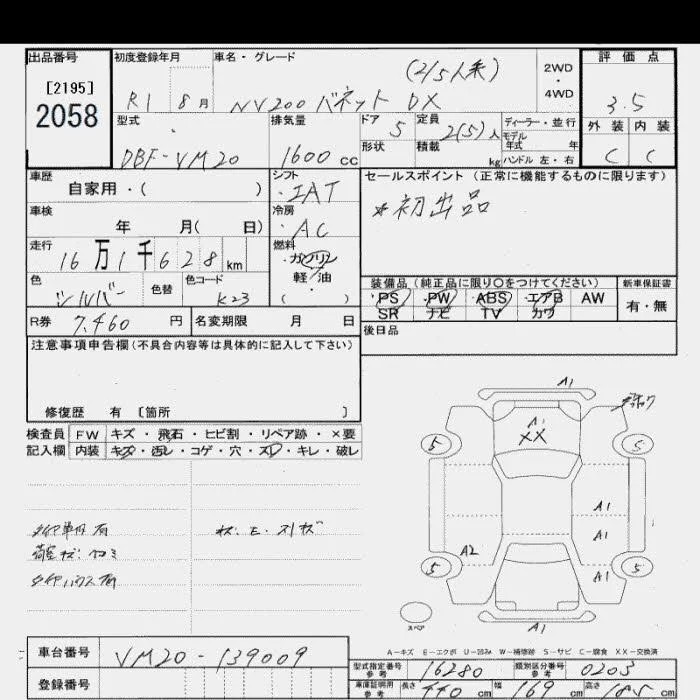 出品番号
[2195]
2058
初度登録年月
R1 8月
車名・グレード
(2/5人乗)
NV200 バネット DX
2WD
・
4WD
評価点
3.5
外装 内装
C C
型式
DBF-VM20
排気量
1600 cc
ドア 5
形状
定員 2(5)人
積載 kg
ディーラー・並行
モデル年式 年
ハンドル 左・右
車歴
自家用・( )
シフト
IAT
セールスポイント (正常に機能するものに限ります)
*初出品
車検
年 月( 日)
冷房
AC
走行
16万1千628 km
燃料
ガソリン
軽/油
( )
色
シルバー
色替
色コード
K23
装備品 (純正品に限り○をつけてください)
PS PW ABS エアB AW
SR ナビ TV カワ
新車保証書
有・無
R券 7,460 円
名変期限 月 日
後日品
注意事項申告欄(不具合内容等は具体的に記入して下さい)
修復歴 有 〔箇所 〕
検査員 FW キズ・飛石・ヒビ割・リペア跡・×要
記入欄 内装 キズ・汚レ・コゲ・穴・スレ・キレ・破レ
A1
A1
XX
5
5
A1
A1
A2
5
A1
5
スペア
A1
A-キズ E-エクボ U-凹み W-補修跡 S-サビ C-腐食 XX-交換済
車台番号 VM20-139009
登録番号
型式指定番号 参考 16280
類別区分番号 参考 0203
車庫証明用 参考 長さ 440 cm 幅 169 cm 高さ 185 cm